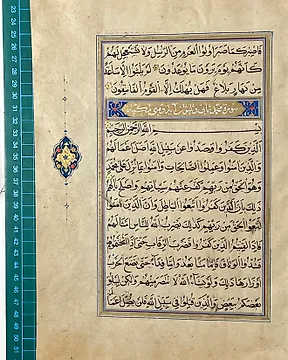 فاصبر كما صبر اولوا العزم من الرسل ولا تستعجل لهم
كانهم يوم يرون ما يوعدون لم يلبثوا الا ساعة
من نهار بلاغ فهل يهلك الا القوم الفاسقون
سورة محمد
بسم الله الرحمن الرحيم
الذين كفروا وصدوا عن سبيل الله اضل اعمالهم
والذين امنوا وعملوا الصالحات وامنوا بما نزل على محمد
وهو الحق من ربهم كفر عنهم سيئاتهم واصلح بالهم
ذلك بان الذين كفروا اتبعوا الباطل وان الذين امنوا
اتبعوا الحق من ربهم كذلك يضرب الله للناس امثالهم
فاذا لقيتم الذين كفروا فضرب الرقاب حتى اذا اثخنتموهم
فشدوا الوثاق فاما منا بعد واما فداء حتى تضع الحرب
اوزارها ذلك ولو يشاء الله لانتصر منهم ولكن ليبلو
بعضكم ببعض والذين قتلوا في سبيل الله فلن يضل